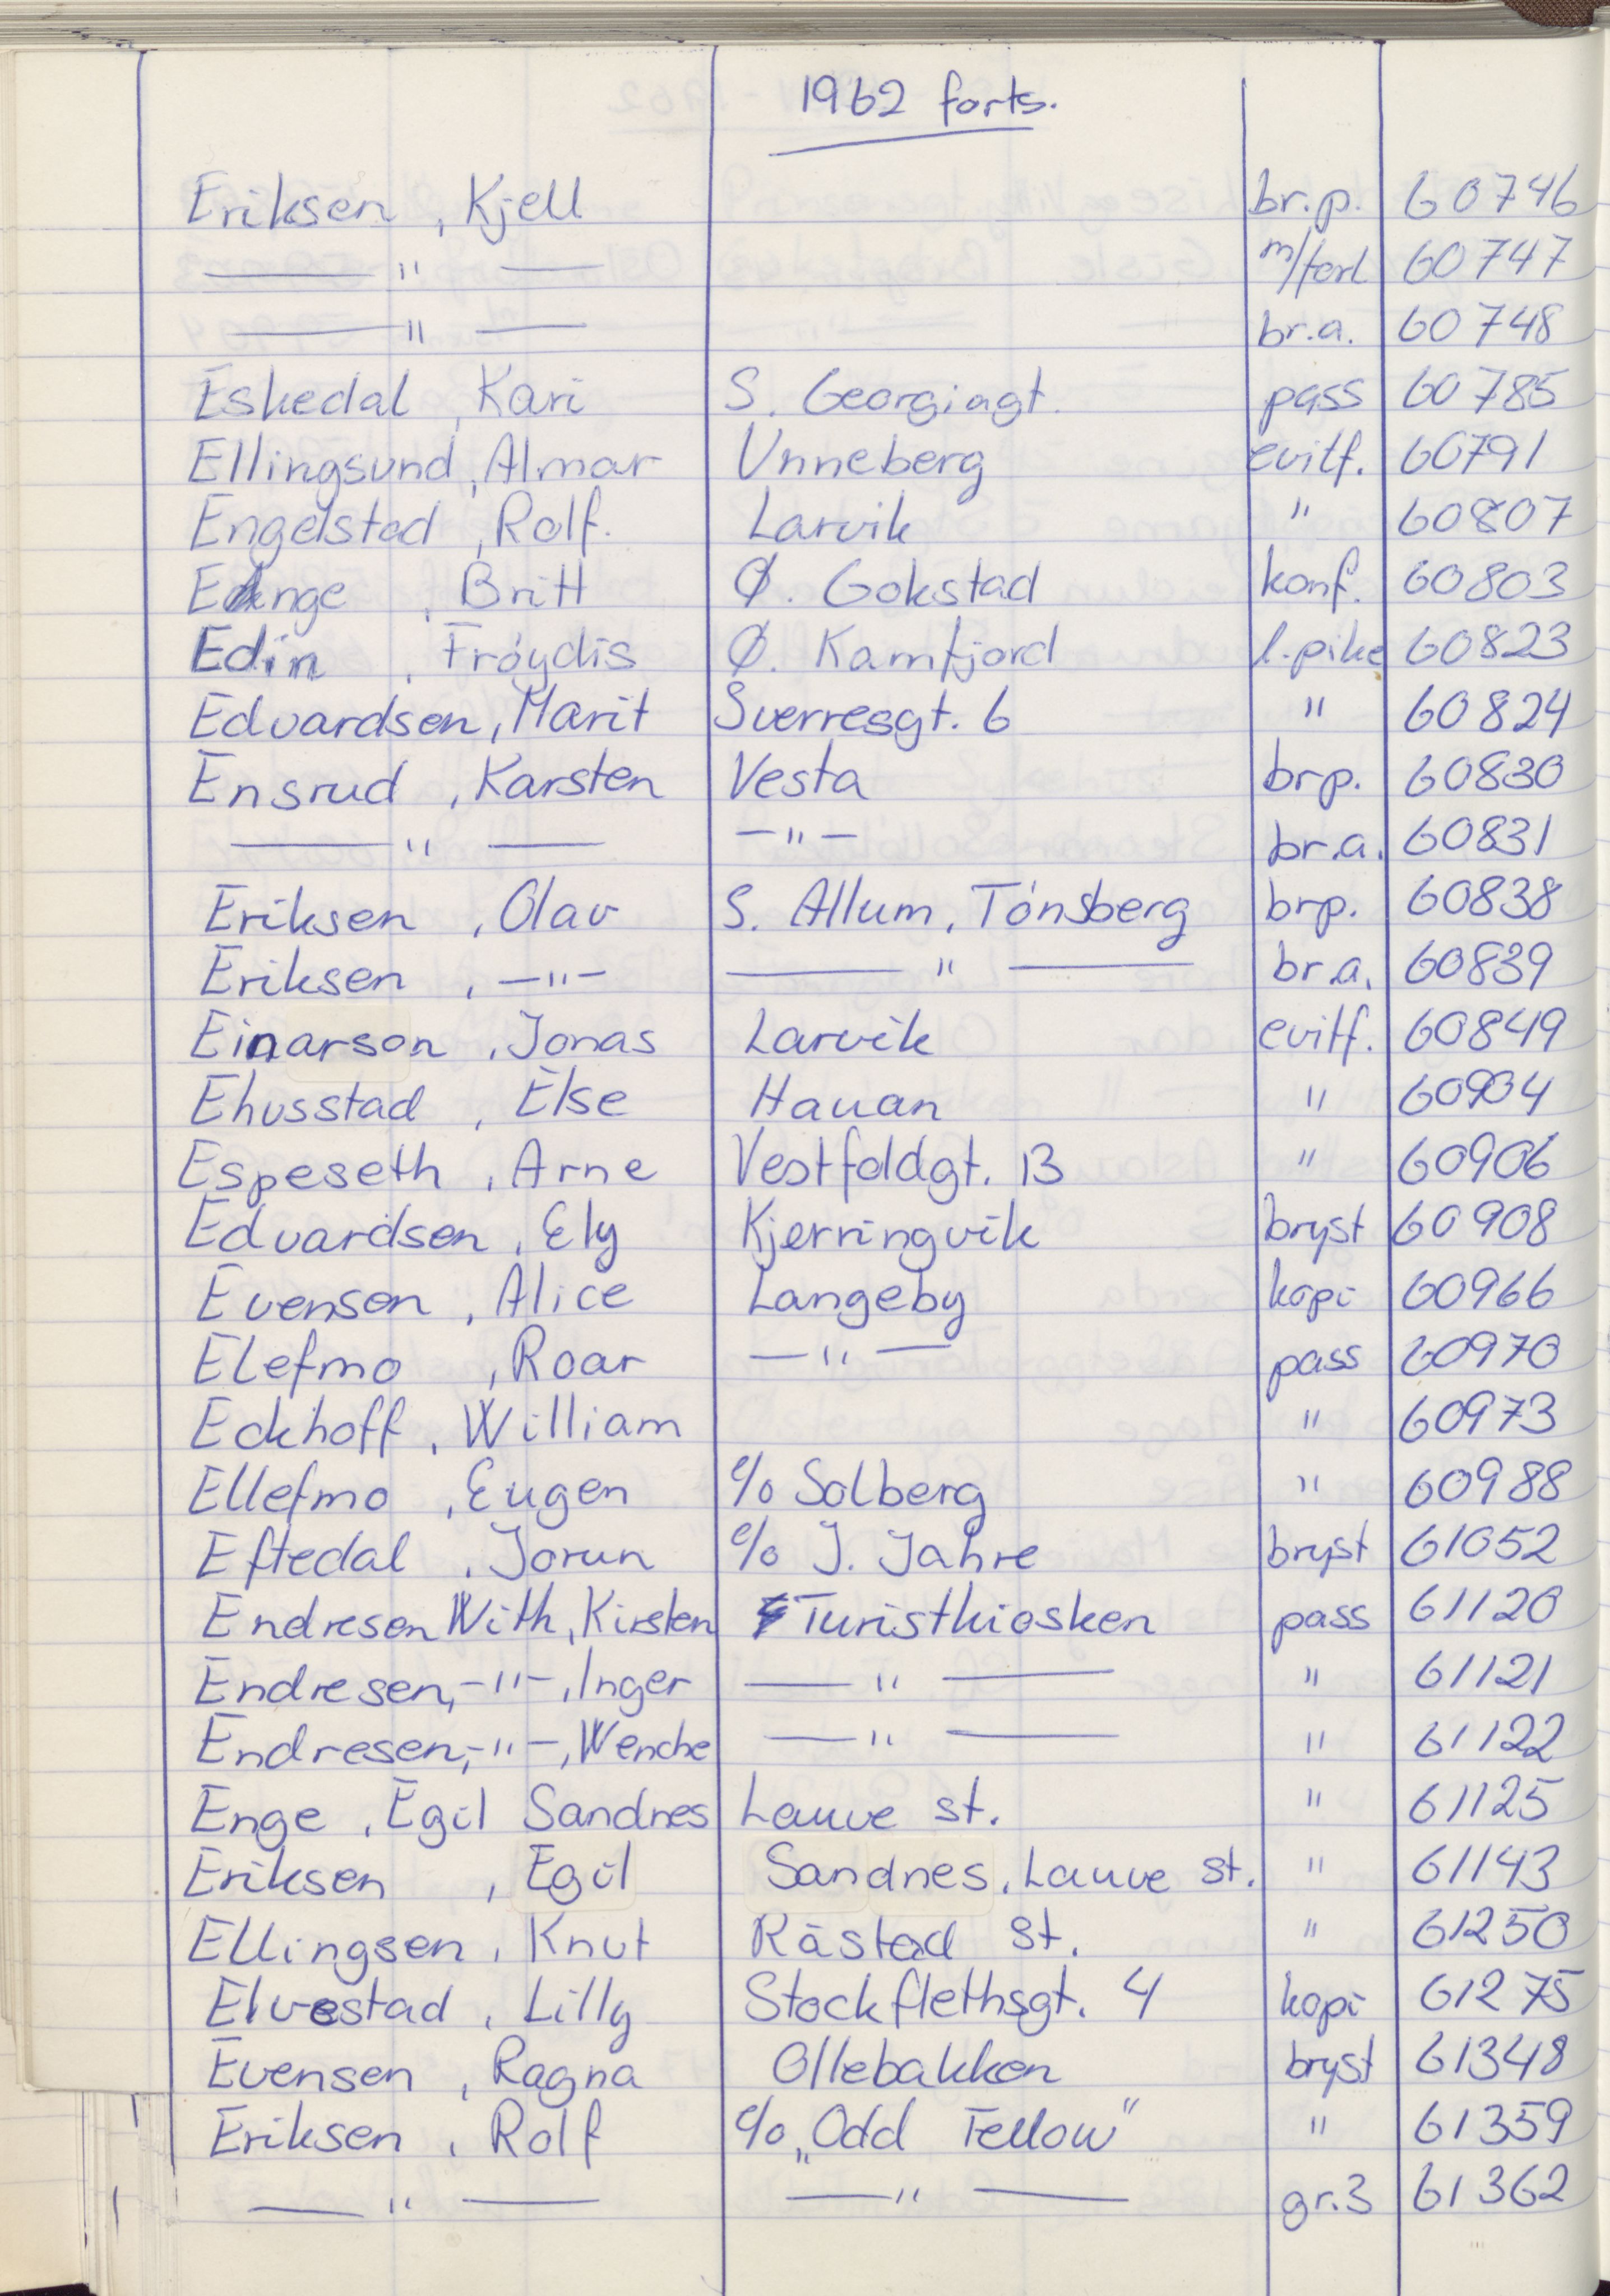 1962 forts.
Eriksen , Kjell br.p. 60746
— " — m/forl 60747
— " — br.a. 60748
Eskedal , Kari S. Georgiagt. pass 60785
Ellingsund , Almar Unneberg evitf. 60791
Engelstad , Rolf. Larvik " 60807
Enge , Britt Ø. Gokstad konf. 60803
Edin , Frøydis Ø. Kamfjord l.pike 60823
Edvardsen , Marit Sverresgt. 6 " 60824
Ensrud , Karsten Vesta brp. 60830
— " — — " — br.a. 60831
Eriksen , Olav S. Allum, Tønsberg brp. 60838
Eriksen , — " — — " — br.a. 60839
Einarson , Jonas Larvik evitf. 60849
Ehusstad , Else Hauan " 60904
Espeseth , Arne Vestfoldgt. 13 " 60906
Edvardsen , Ely Kjerringvik bryst 60908
Evensen , Alice Langeby kopi 60966
Elefmo , Roar — " — pass 60970
Eckhoff , William " 60973
Ellefmo , Eugen c/o Solberg " 60988
Eftedal , Jorun c/o J. Jahre bryst 61052
Endresen With , Kirsten Turistkiosken pass 61120
Endresen, — " — , Inger — " — " 61121
Endresen, — " — , Wenche — " — " 61122
Enge , Egil Sandnes Lauve st. " 61125
Eriksen , Egil Sandnes, Lauve st. " 61143
Ellingsen , Knut Råstad st. " 61250
Elvestad , Lilly Stockflethsgt. 4 kopi 61275
Evensen , Ragna Ollebakken bryst 61348
Eriksen , Rolf c/o „Odd Fellow" " 61359
— " — — " — gr.3 61362